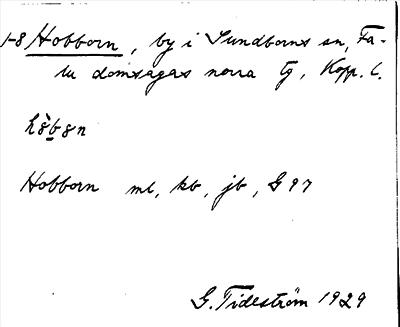 1-8 Hobborn, by i Sundborns sn, Fa-
lu domsagas norra tg, Kopp. l.
hòb8n
Hobborn ml, kb, jb, G 97
G. Tideström 1929